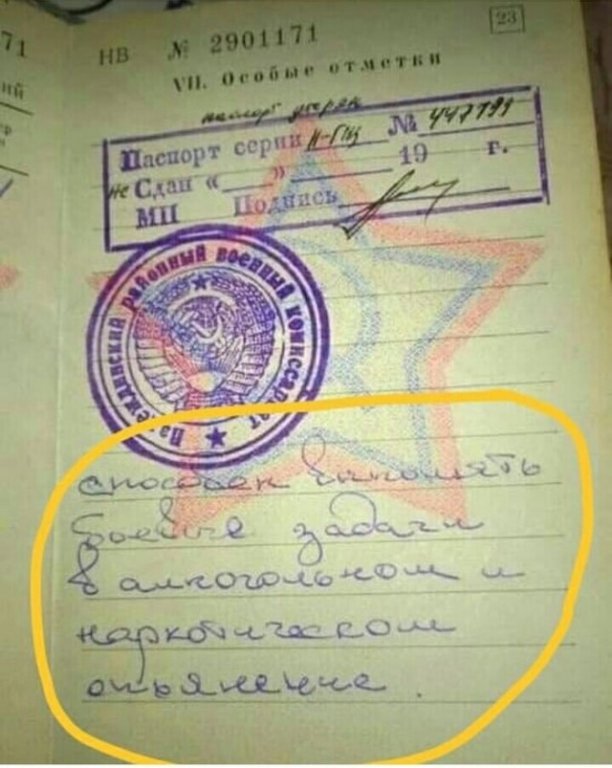 71
23
НВ № 2901171
VII. Особые отметки
паспорт утерян
Паспорт серии № 447199
не Сдан « » 19 г.
МП Подпись
Надеждинский районный военный комиссариат
способен выполнять
боевые задачи
в алкогольном и
наркотическом
опьянение.